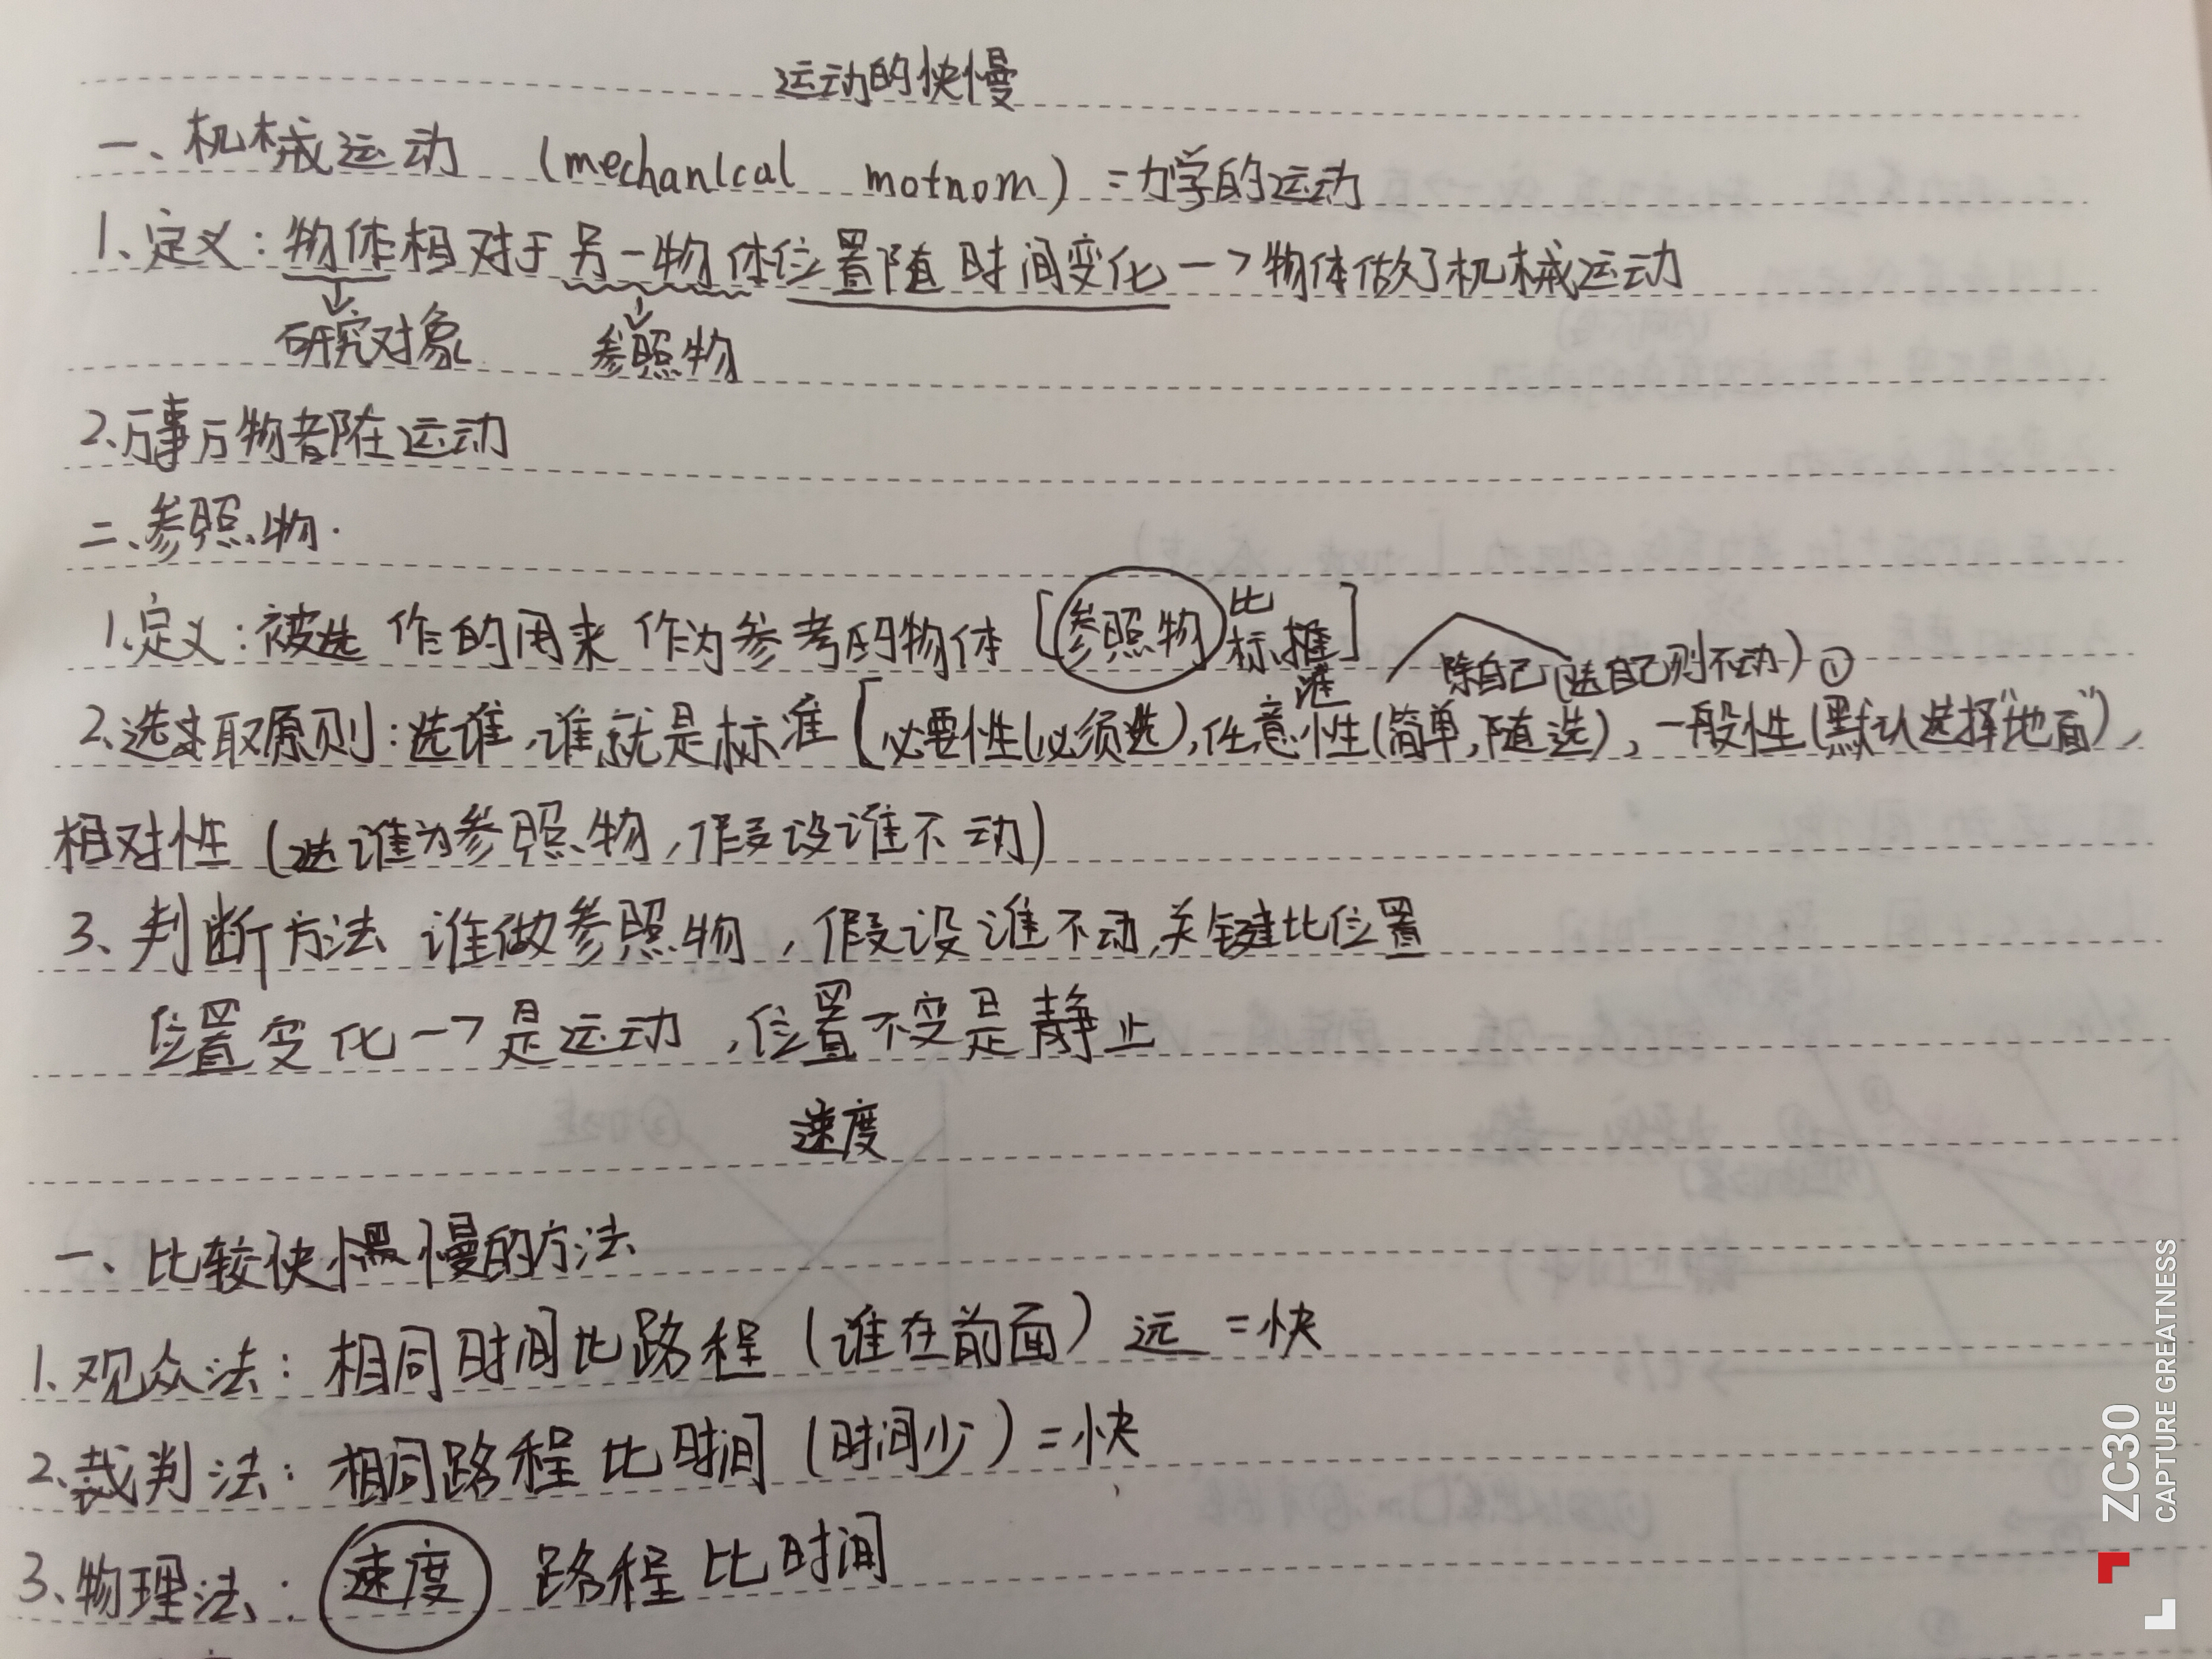 运动的快慢
一、机械运动 (mechanical motnom) = 力学的运动
1、定义:物体相对于另一物体位置随时间变化—>物体做了机械运动
研究对象 参照物
2、万事万物都在运动
二、参照物.
1、定义:被选作的用来作为参考的物体 [参照物 比标准]
除自己(选自己则不动)①
2、选取原则:选谁,谁就是标准[必要性(必须选),任意性(简单,随选),一般性(默认选择“地面”),
相对性(选谁为参照物,假设谁不动)
3、判断方法 谁做参照物,假设谁不动,关键比位置
位置变化—>是运动,位置不变是静止
速度
一、比较快慢的方法
1、观众法:相同时间比路程(谁在前面)远=快
2、裁判法:相同路程比时间(时间少)=快
3、物理法:速度 路程比时间
ZC30
CAPTURE GREATNESS